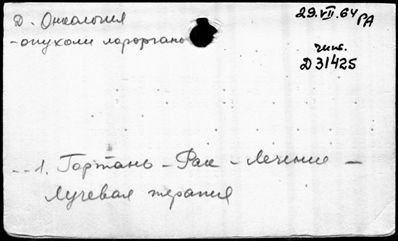 Д. Онкология
- опухоли лороргано
29.VII.64 РА
чит.
Д31425
1. Гортань - Рак - Лечение -
Лучевая терапия